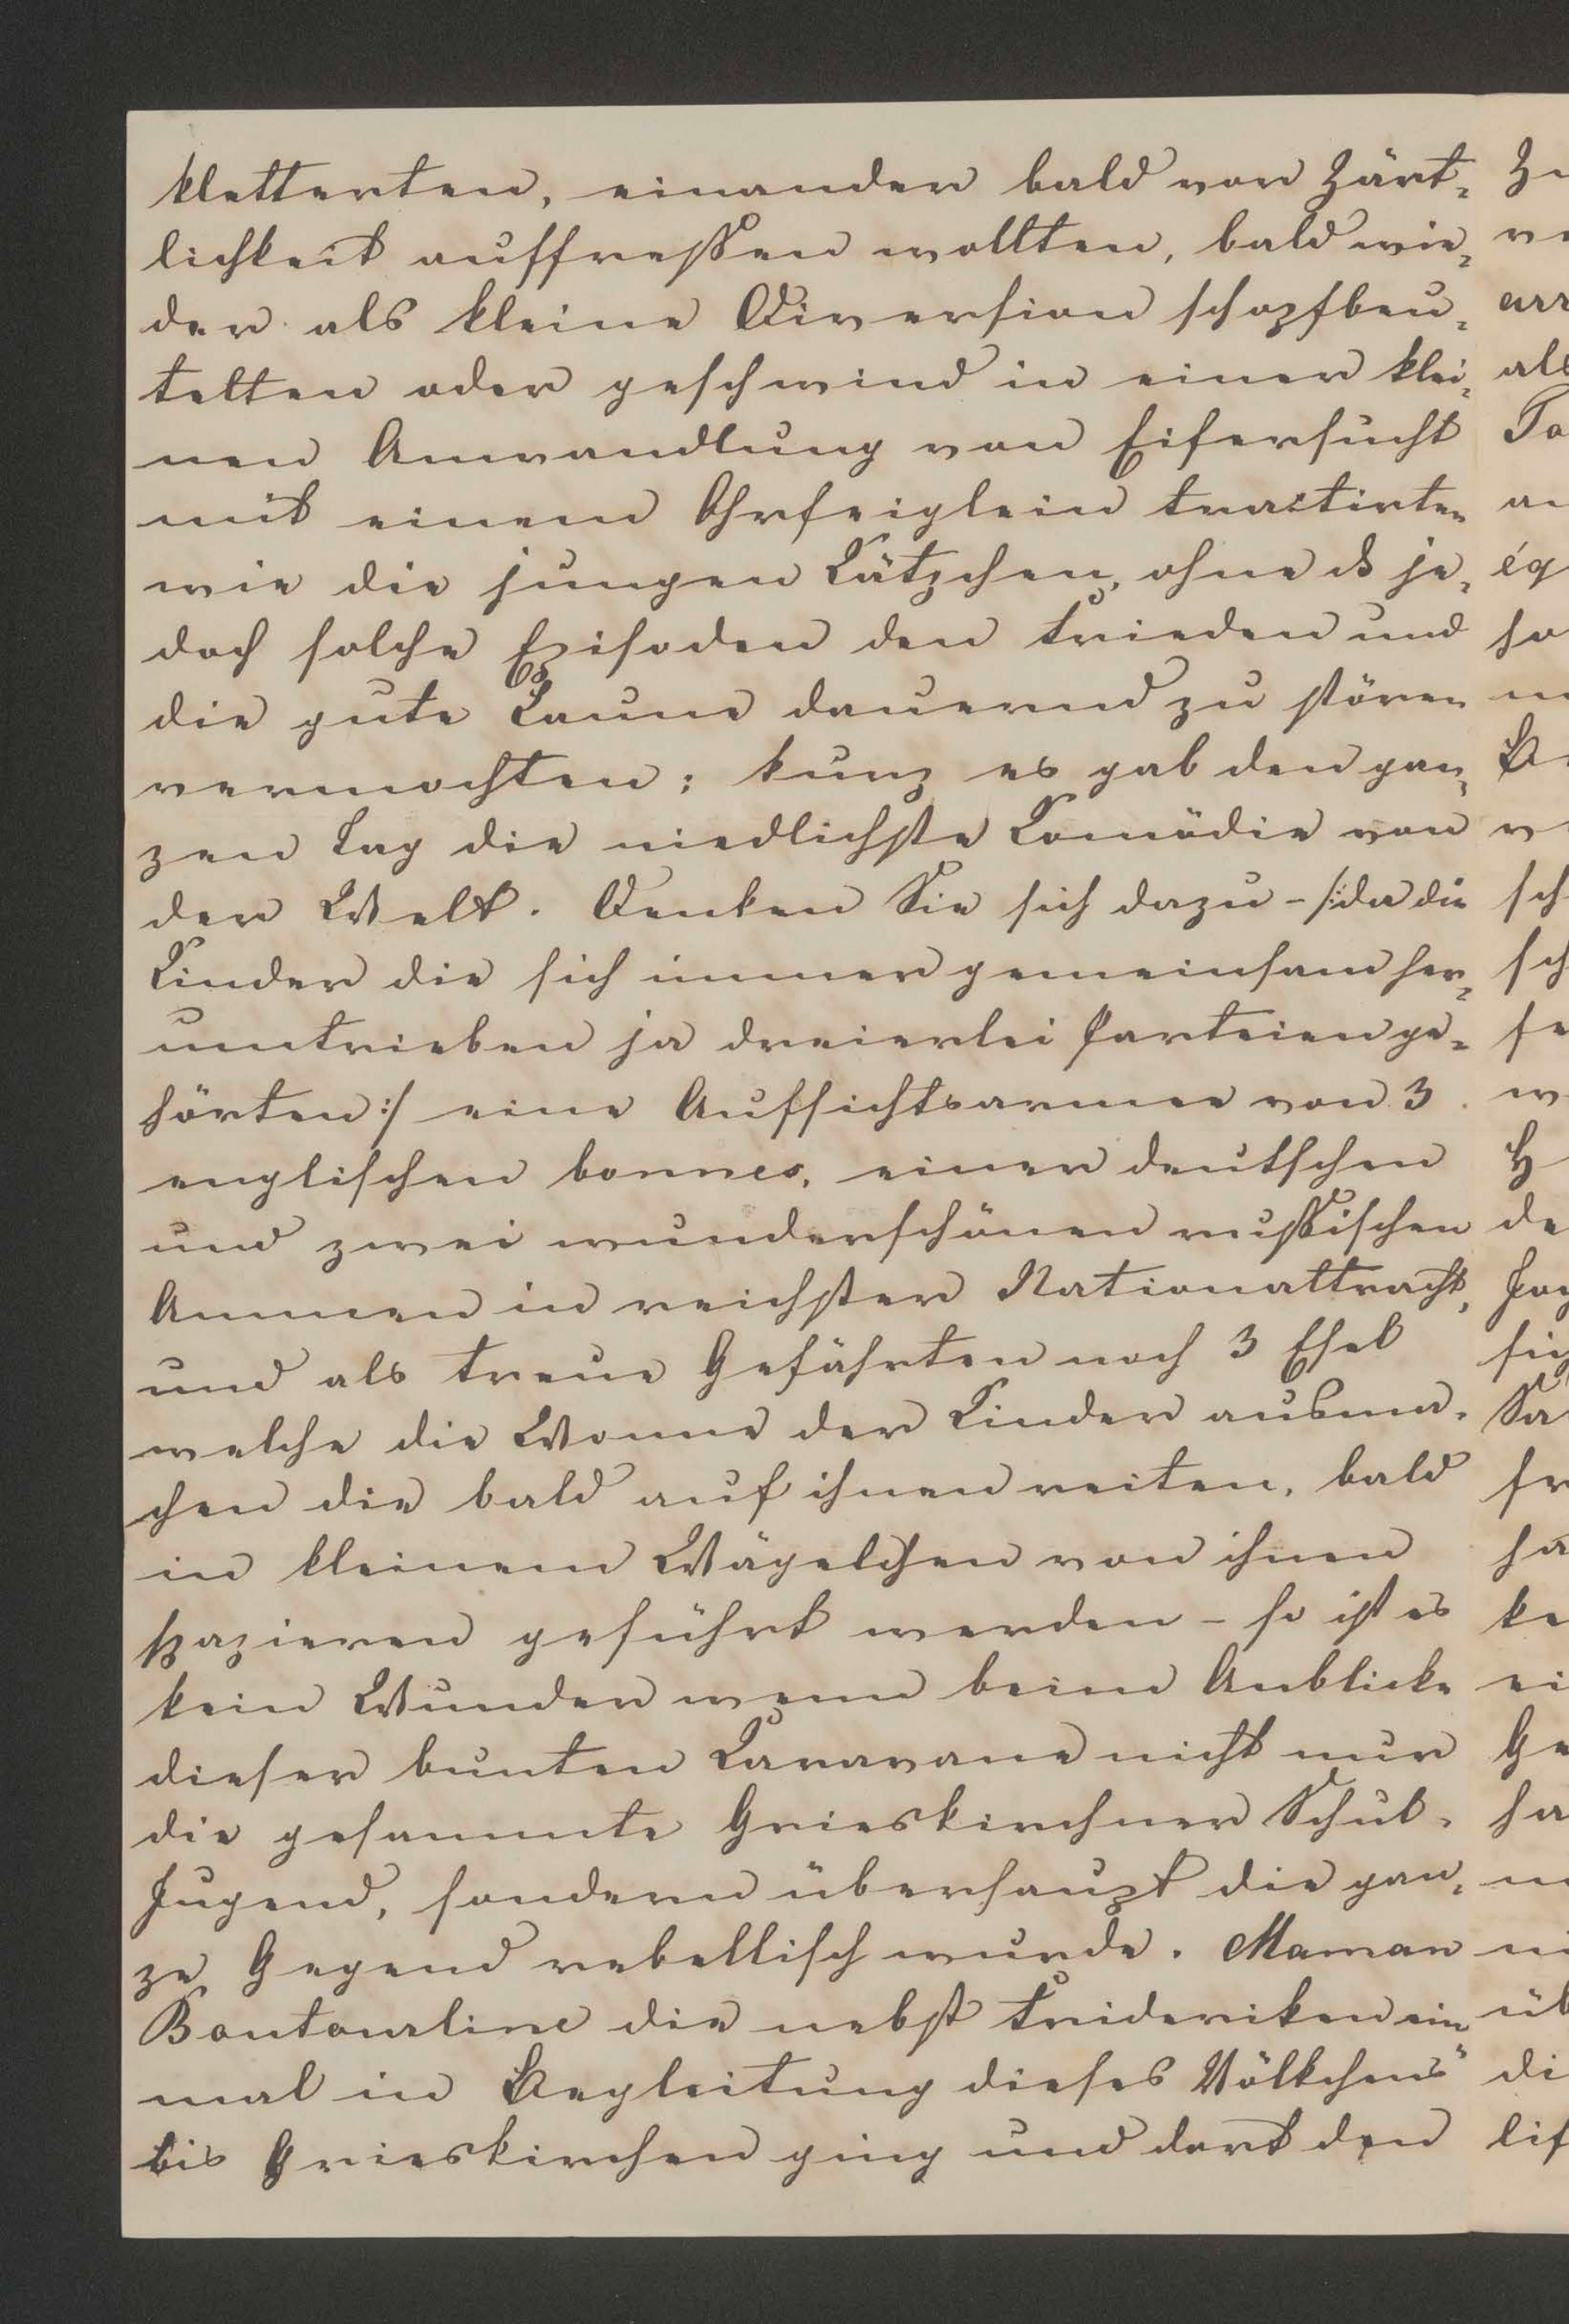 kletterten, einander bald vor Zärt-
lichkeit auffreßen wollten, bald wie-
der als kleine Diversion schopfbeu-
telten oder geschwind in einer klei-
nen Anwandlung von Eifersucht
mit einem Ohrfeiglein tractirten
wie die jungen Kätzchen, ohne ds je-
doch solche Episoden den Frieden und
die gute Laune dauernd zu stören
vermochten; kurz es gab den gan-
zen Tag die niedlichste Komödie von
der Welt. Denken Sie sich dazu - /:da die
Kinder die sich immer gemeinsam her-
umtrieben ja dreierlei Parteien ge-
hörten:/ eine Aufsichtsarmee von 3
englischen bonnes, einer deutschen
und zwei wunderschönen rußischen
Ammen in reichster Nationaltracht,
und als treue Gefährten noch 3 Esel
welche die Wonne der Kinder ausma-
chen die bald auf ihnen reiten, bald
in kleinem Wägelchen von ihnen
spazieren geführt werden - so ist es
kein Wunder wenn beim Anblicke
dieser bunten Karavane nicht nur
die gesammte Grieskirchner Schul-
Jugend, sondern überhaupt die gan-
ze Gegend rebellisch wurde. Maman
Boutourline die nebst Friderike ein-
mal in Begleitung dieses Völkchens
bis Grieskirchen ging und dort den